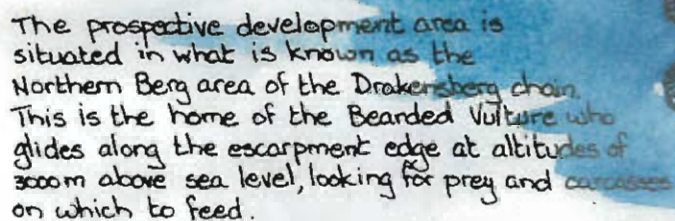 The prospective development area is
situated in what is known as the
Northern Berg area of the Drakensberg chain.
This is the home of the Bearded Vulture who
glides along the escarpment edge at altitudes of
3000m above sea level, looking for prey and carcasses
on which to feed.